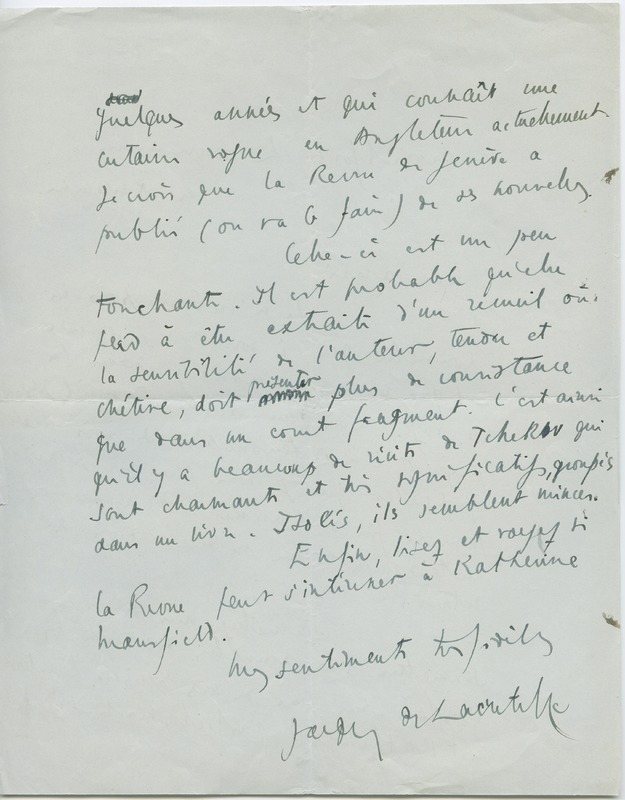 quelques années et qui connaît une
certaine vogue en Angleterre actuellement.
Je crois que la Revue de Genève a
publié (ou va le faire) de ses nouvelles.
Celle-ci est un peu
touchante. Il est probable qu'elle
perd à être extraite d'un recueil où
la sensibilité de l'auteur, tendre et
chétive, doit présenter plus de consistance
que dans un court fragment. C'est ainsi
qu'il y a beaucoup de récits de Tchekov qui
sont charmants et très significatifs, groupés
dans un livre. Isolés, ils semblent minces.
Enfin, lisez et voyez si
la Revue peut s'intéresser à Katherine
Mansfield.
Mes sentiments très fidèles
Jacques de Lacretelle